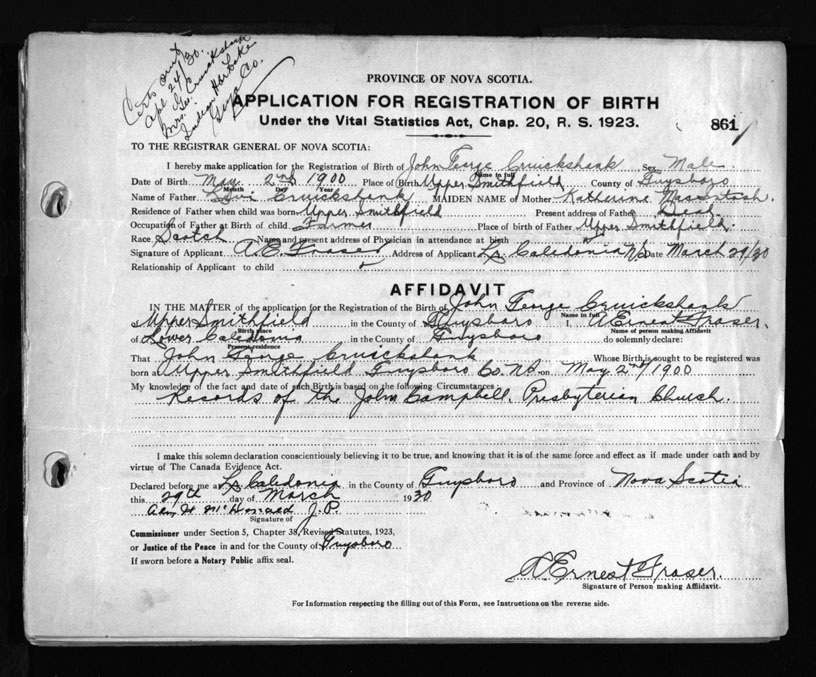 Certs out
Apl 24/30.
Mrs. Geo. Cruickshank
Indian Harb Lake
Guys Co.
PROVINCE OF NOVA SCOTIA.
APPLICATION FOR REGISTRATION OF BIRTH
Under the Vital Statistics Act, Chap. 20, R. S. 1923.
861
TO THE REGISTRAR GENERAL OF NOVA SCOTIA:
I hereby make application for the Registration of Birth of John George Cruickshank Sex Male
Name in full
Date of Birth May 2nd 1900 Place of Birth Upper Smithfield County of Guysboro
Month Day Year
Name of Father Cruickshank MAIDEN NAME of Mother Katherine MacIntosh
Residence of Father when child was born Upper Smithfield Present address of Father Dead
Occupation of Father at Birth of child Farmer Place of birth of Father Upper Smithfield.
Race Scotch Name and present address of Physician in attendance at birth
Signature of Applicant A. E. Fraser Address of Applicant Lr. Caledonia NS Date March 29/30
Relationship of Applicant to child
AFFIDAVIT
IN THE MATTER of the application for the Registration of the Birth of John George Cruickshank
Name in full
at Upper Smithfield in the County of Guysboro I, A Ernest Fraser.
Birth place Name of person making Affidavit
of Lower Caledonia in the County of Guysboro do solemnly declare:
Present residence
That John George Cruickshank Whose Birth is sought to be registered was
born at Upper Smithfield Guysboro Co. N.S. on May 2nd/1900
My knowledge of the fact and date of such Birth is based on the following Circumstances:
Records of the John Campbell. Presbyterian Church.
I make this solemn declaration conscientiously believing it to be true, and knowing that it is of the same force and effect as if made under oath and by
virtue of The Canada Evidence Act.
Declared before me at Lr. Caledonia in the County of Guysboro and Province of Nova Scotia
this 29th day of March 1930
J.P.
Signature of
Commissioner under Section 5, Chapter 38, Revised Statutes, 1923,
or Justice of the Peace in and for the County of Guysboro
If sworn before a Notary Public affix seal.
A. Ernest Fraser.
Signature of Person making Affidavit.
For Information respecting the filling out of this Form, see Instructions on the reverse side.